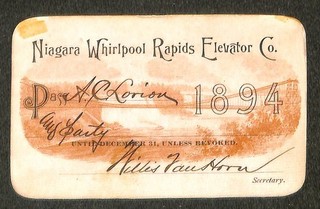 Niagara Whirlpool Rapids Elevator Co.
Pass A. C. Lorison 1894
and party
UNTIL DECEMBER 31, UNLESS REVOKED.
Willis Van Horn
Secretary.